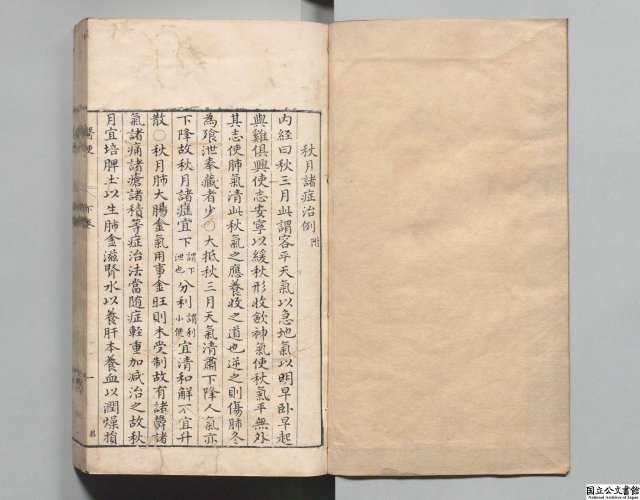 秋月諸症治例附
内經曰秋三月此謂容平天氣以急地氣以明早卧早起
與雞俱興使志安寧以緩秋形收歛神氣使秋氣平無外
其志使肺氣清此秋氣之應養收之道也逆之則傷肺冬
為飱泄奉藏者少〇大抵秋三月天氣清肅下降人氣亦
下降故秋月諸症宜下謂下泄也分利謂利小便宜清和解不宜升
散〇秋月肺大腸金氣用事金旺則木受制故有諸欝諸
氣諸痛諸瘡諸積等症治法當随症輕重加减治之故秋
月宜培脾土以生肺金滋腎水以養肝木養血以潤燥損
醫便
卷
一
国立公文書館
National Archives of Japan